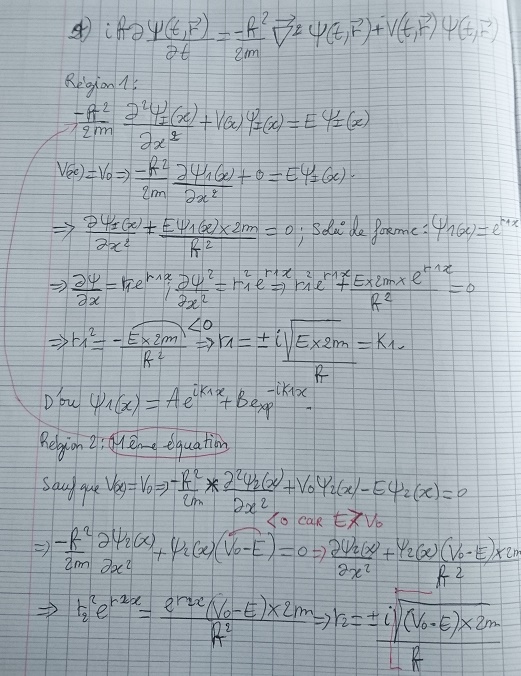 1) iℏ ∂Ψ(t,r⃗)/∂t = -ℏ²/2m ∇⃗² Ψ(t,r⃗) + V(t,r⃗) Ψ(t,r⃗)
Région 1:
-ℏ²/2m ∂²Ψ_I(x)/∂x² + V(x) Ψ_I(x) = E Ψ_I(x)
V(x) = V₀ ⇒ -ℏ²/2m ∂Ψ₁(x)/∂x² + 0 = E Ψ_I(x).
⇒ ∂Ψ_I(x)/∂x² + EΨ₁(x)×2m/ℏ² = 0 ; de forme: Ψ₁(x) = e^{r1x}
⇒ ∂Ψ/∂x = r₁e^{r1x}; ∂Ψ²/∂x² = r₁²e^{r1x} ⇒ r₁²e^{r1x} + E×2m×e^{r1x}/ℏ² = 0
⇒ r₁² = -E×2m/ℏ² <0 ⇒ r₁ = ± i√(E×2m)/ℏ = K₁.
D'où Ψ₁(x) = Ae^{iK1x} + Bexp^{-iK1x}.
Région 2: Même équation
Sauf que V(x) = V₀ ⇒ -ℏ²/2m * ∂²Ψ₂(x)/∂x² + V₀Ψ₂(x) - EΨ₂(x) = 0
<0 car E > V₀
⇒ -ℏ²/2m ∂Ψ₂(x)/∂x² + Ψ₂(x)(V₀-E) = 0 ⇒ ∂Ψ₂(x)/∂x² + Ψ₂(x)(V₀-E)×2m/ℏ²
⇒ r₂²e^{r2x} = e^{r2x}(V₀-E)×2m/ℏ² ⇒ r₂ = ± i√((V₀-E)×2m)/ℏ